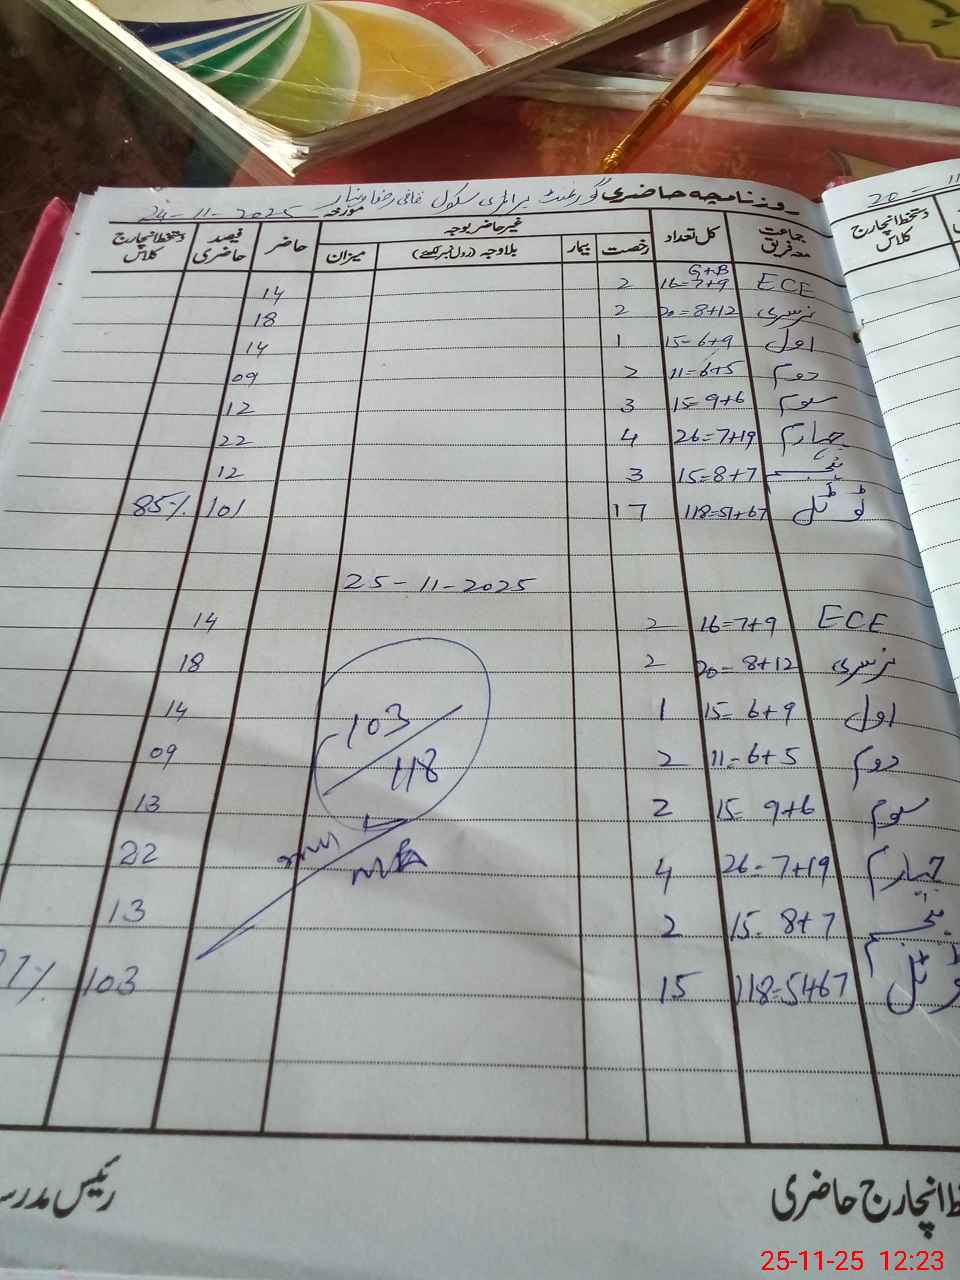 روزنامچہ حاضری گورنمنٹ پرائمری سکول مورخہ 24-11-2025
جماعت معہ فریق کل تعداد غیر حاضر بوجہ حاضر فیصد حاضری دستخط انچارج کلاس
رخصت بیمار بلاوجہ (رول نمبر لکھئے) میزان
G+B
ECE 16=7+9 2 14
نرسری 20=8+12 2 18
اول 15=6+9 1 14
دوم 11=6+5 2 09
سوم 15=9+6 3 12
چہارم 26=7+19 4 22
پنجم 15=8+7 3 12
ٹوٹل 118=51+67 17 101 85%
25-11-2025
ECE 16=7+9 2 14
نرسری 20=8+12 2 18
اول 15=6+9 1 14
دوم 11=6+5 2 09
سوم 15= 9+6 2 13
چہارم 26=7+19 4 22
پنجم 15= 8+7 2 13
ٹوٹل 118=5467 15 103 7%
103
118
انچارج حاضری
رئیس مدرسہ
20-11
دستخط انچارج کلاس
25-11-25 12:23